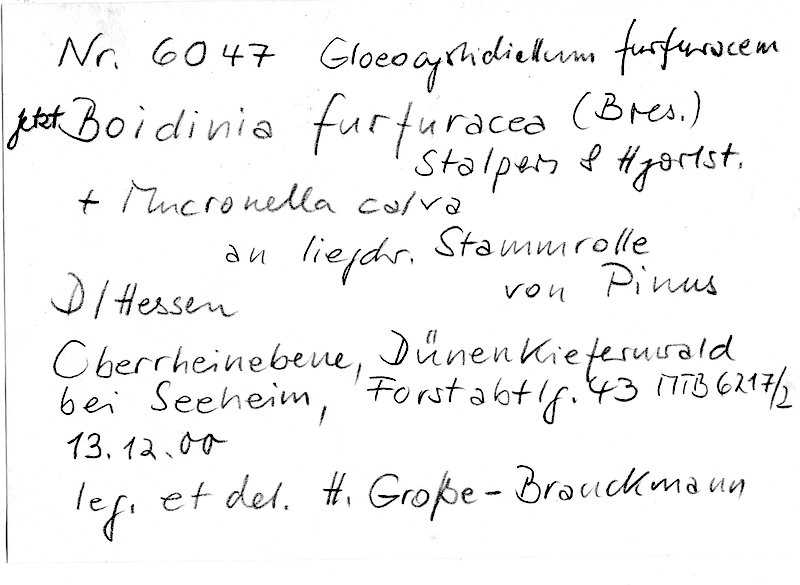 Nr. 6047 Gloeocystidiellum furfuracem
jetzt Boidinia furfuracea (Bres.)
Stalpers & Hjortst.
+ Mucronella calva
an liegdr. Stammrolle
von Pinus
D/Hessen
Oberrheinebene, Dünenkiefernwald
bei Seeheim, Forstabtlg. 43 MTB 6217/2
13.12.00
leg. et det. H. Große-Brauckmann